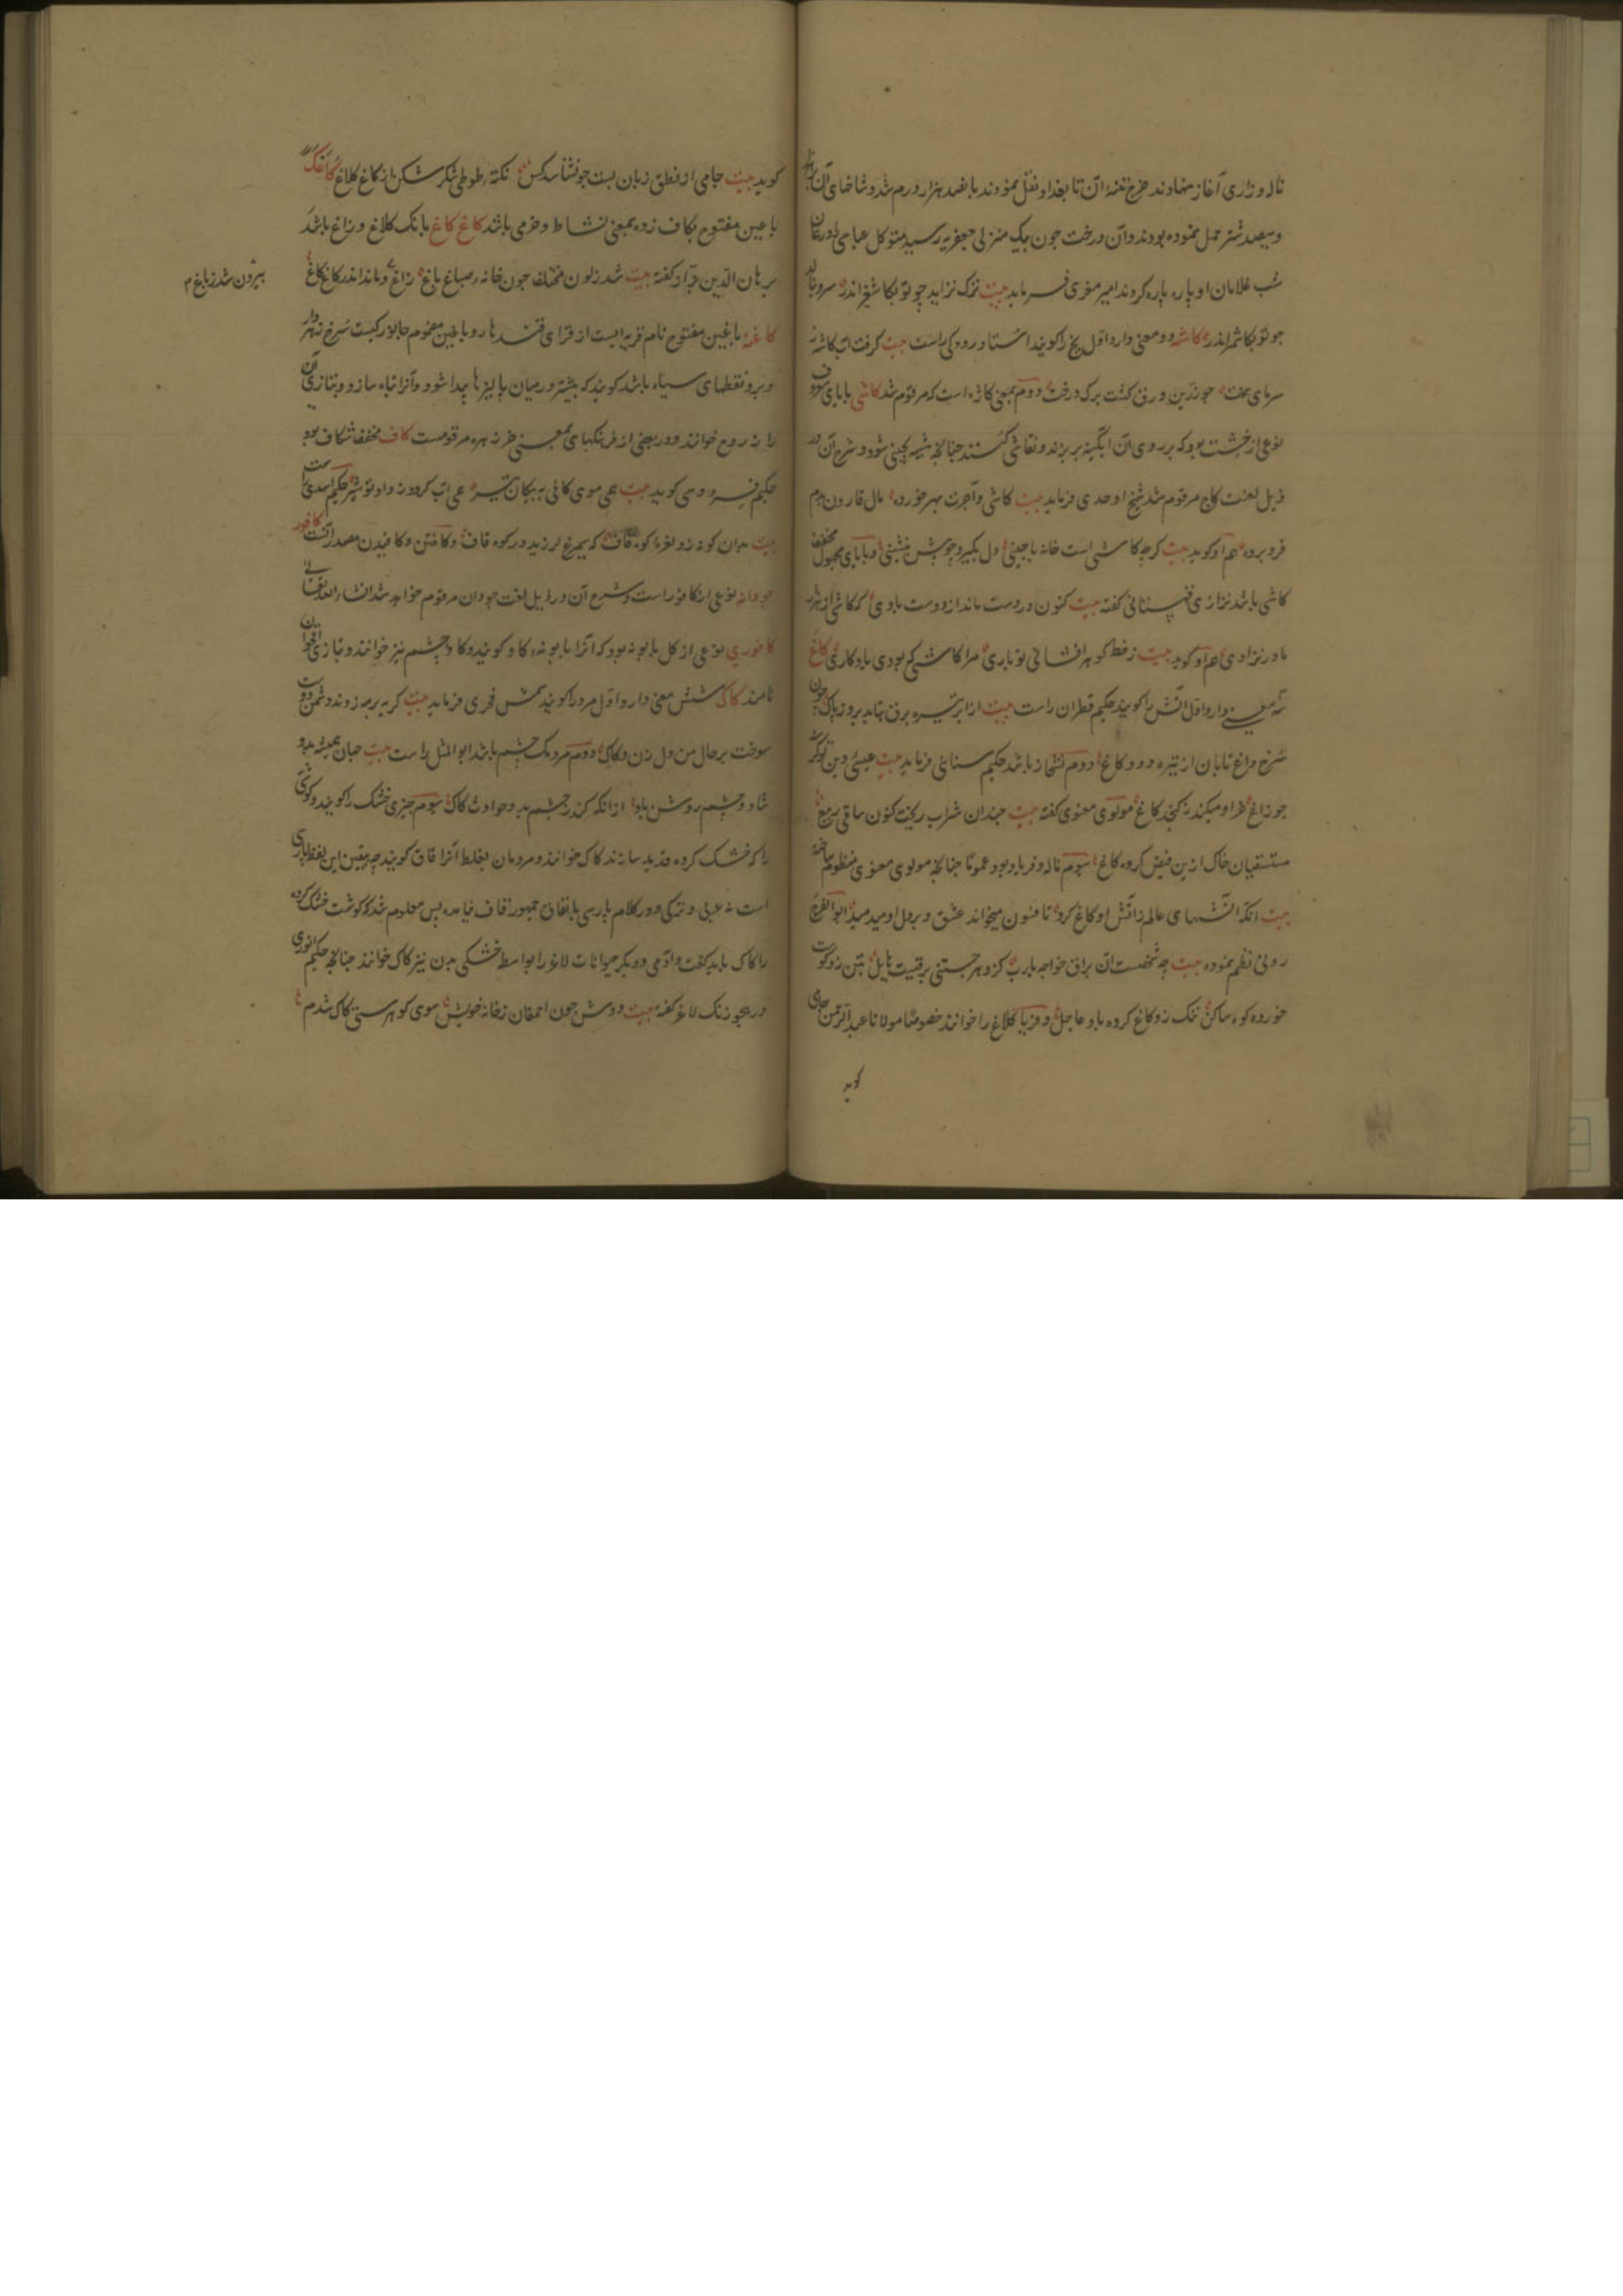 ناله و زاری آغاز نهادند خرج تنهٔ آن تا بغداد و نقل نمودند پانصد هزار درم شد و شاخهای آن بر هزار
و سیصد شتر حمل نموده بودند و آن درخت چون بیک منزلی جعفریه رسید متوکل عباسی را در همان
شب غلامان او پاره پاره کردند امیر معزی فرماید بیت ترک نزاید چو تو بکاشغر اندر سرو نبالد
چو تو بکاشمر اندر کاشه دو معنی دارد اول یخ را کویند استاد رودکی راست بیت کرفت آب کاشه ز
سرمای سخت چو زرین ورق کشت برک درخت دوم بمعنی کاژه است که مرقوم شد کاشی با یای معروف
نوعی از خشت بود که بر روی آن آبکینه بریزند و نقاشی کنند چنانچه شبیه بچینی شود و شرح آن در
ذیل لغت کاج مرقوم شد شیخ اوحدی فرماید بیت کاشی و آجرت بهر خورده مال قارون بدم
فرو برده هم او کوید بیت کرچه کاشی است خانه یا چینی دل بکیرد چو بیش بنشینی و با یای مجهول مخفف
کاشکی باشد نزاری قهستانی کفته بیت کنون در دست ماند از دوست بادی که کاشی از
مادر نزادی هم او کوید بیت ز خط کوهر افشانی نو باری مرا کاشکی بودی یادکاری کاغ
سه معنی دارد اول آتش را کویند حکیم قطران راست بیت از ابر تیره برق بتابد بروز پاک چون
سرخ داغ تابان از تیره دود کاغ دوم نشخار باشد حکیم سنایی فرماید بیت عیسی دین تو کر
چو زاغ همی کند کاغ مولوی معنوی کفته بیت چندان شراب ریخت کنون ساقی ربیع
مستسقیان خاک ازین فیض کرده کاغ سوم ناله و فریاد بود عموما چنانچه مولوی معنوی منظوم ساخته
بیت آنکه آتشهای عالم ز آتش او کاغ کرد تا فسون میخواند عشق و بر دل او میدمید ابوالفرج
رونی نظم نموده بیت چه شخصست آن براق خواجه یارب کز و هر جستنی برقیست هایل
خورده کوه ساکن کاغ کرده باد عاجل و فریاد کلاغ را خوانند خصوصا مولانا عبدالرحمن جامی
کوید
کوید بیت جامی از نطق زبان بست چو نشناسد کس نکته طوطی شکر شکن از کاغ کلاغ کاغک
با غین مفتوح بکاف زده بمعنی نشاط و خرمی باشد کاغ کاغ بانک کلاغ و زاغ باشد
برهان الدین کفته بیت شد ز لون مختلف چون خانه صباغ باغ زاغ و ماند اندر کاغ کاغ
بیرون شد ز باغ م
کاغنه با غین مفتوح نام قریه ایست از قرای قندهار و با غین مضموم جانورکیست سرخ زهردار
و برو نقطهای سیاه باشد کویند که بیشتر در میان پالیزها پیدا شود و آنرا تباه سازد و بتازی آن
را ذروح خوانند و در بعضی از فرهنکهای بمعنی مرقومست کاف مخفف شکاف بود
حکیم فردوسی کوید بیت همی موی کافی به پیکان تیر همی آب کردد ز داد تو شیر حکیم اسدی راست
بیت بدان کونه زد نعره کوه قاف که سیمرغ لرزید در کوه قاف و کافتن و کافیدن مصدر آنست کافور
جودانه نوعی از کافور است و شرح آن در ذیل لغت جودان مرقوم خواهد شد انشاء الله تعالی
کافوری نوعی از کل بابونه بود که آنرا بابونه کاو کویند و کاوچشم نیز خوانند و بتازی اقحوان
نامند کاک شش معنی دارد اول مرد را کویند شمس فخری فرماید بیت کر به برجه زدند دشمن و دوست
سوخت بر حال من دل زن و کاک دوم مردمک چشم باشد ابوالمثل راست بیت جهان همیشه بدو
شاد و چشم روشن باد از آنکه کند چشم بد و حوادث کاک سوم چیزی خشک را کویند و کوشتی
را که خشک کرده قدید سازند کاک خوانند و مردمان بغلط آنرا قاق کویند چه یقین این لفظ پارسی
است نه عربی و ترکی و در کلام پارسی باتفاق جمهور قاف نیامده پس معلوم شد که کوشت خشک کرده
را کاک باید کفت و آدمی و دیکر حیوانات لاغر را بواسطه خشکی بدن نیز کاک خوانند چنانچه حکیم انوری
در هجو زنک لاغر کفته بیت دوش چون احمقان ز خانه خویش سوی کوهر ستی کاک شدم